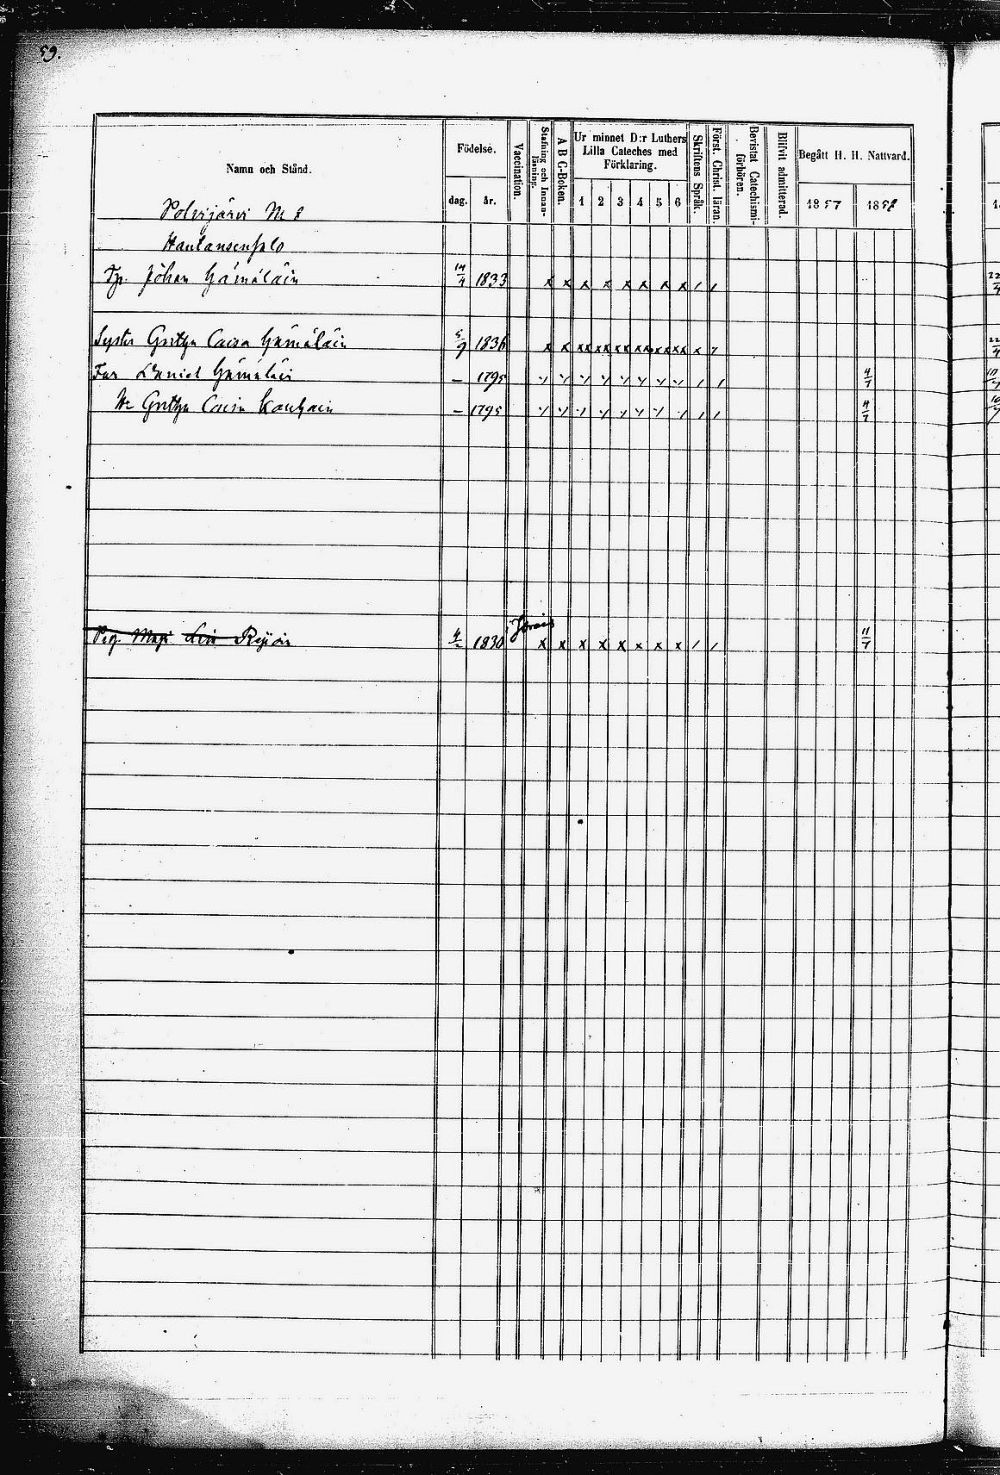 59.
Namn och Stånd.
Födelse.
dag.
år.
Vaccination.
Stafning och Innanläsning.
A B C-Boken.
Ur minnet D:r Luthers
Lilla Cateches med
Förklaring.
1 2 3 4 5 6
Skriftens Språk.
Först. Christ. läran.
Bevistat Catechismiförhören.
Blifvit admitterad.
Begått H. H. Nattvard.
1857 1858
Polvijärvi № 8
Johan Hämäläin 14/4 1833 x x x x x x x x / /
Syster Gretha Caisa Hämäläin 5/9 1836 x x xx xx xx xx xx xx x
Far Daniel Hämäläin – 1795 4/7
Gretha Caisa – 1795 4/7
Pig. Maj: Lisa 1830 x x x x x x x x / / 11/7